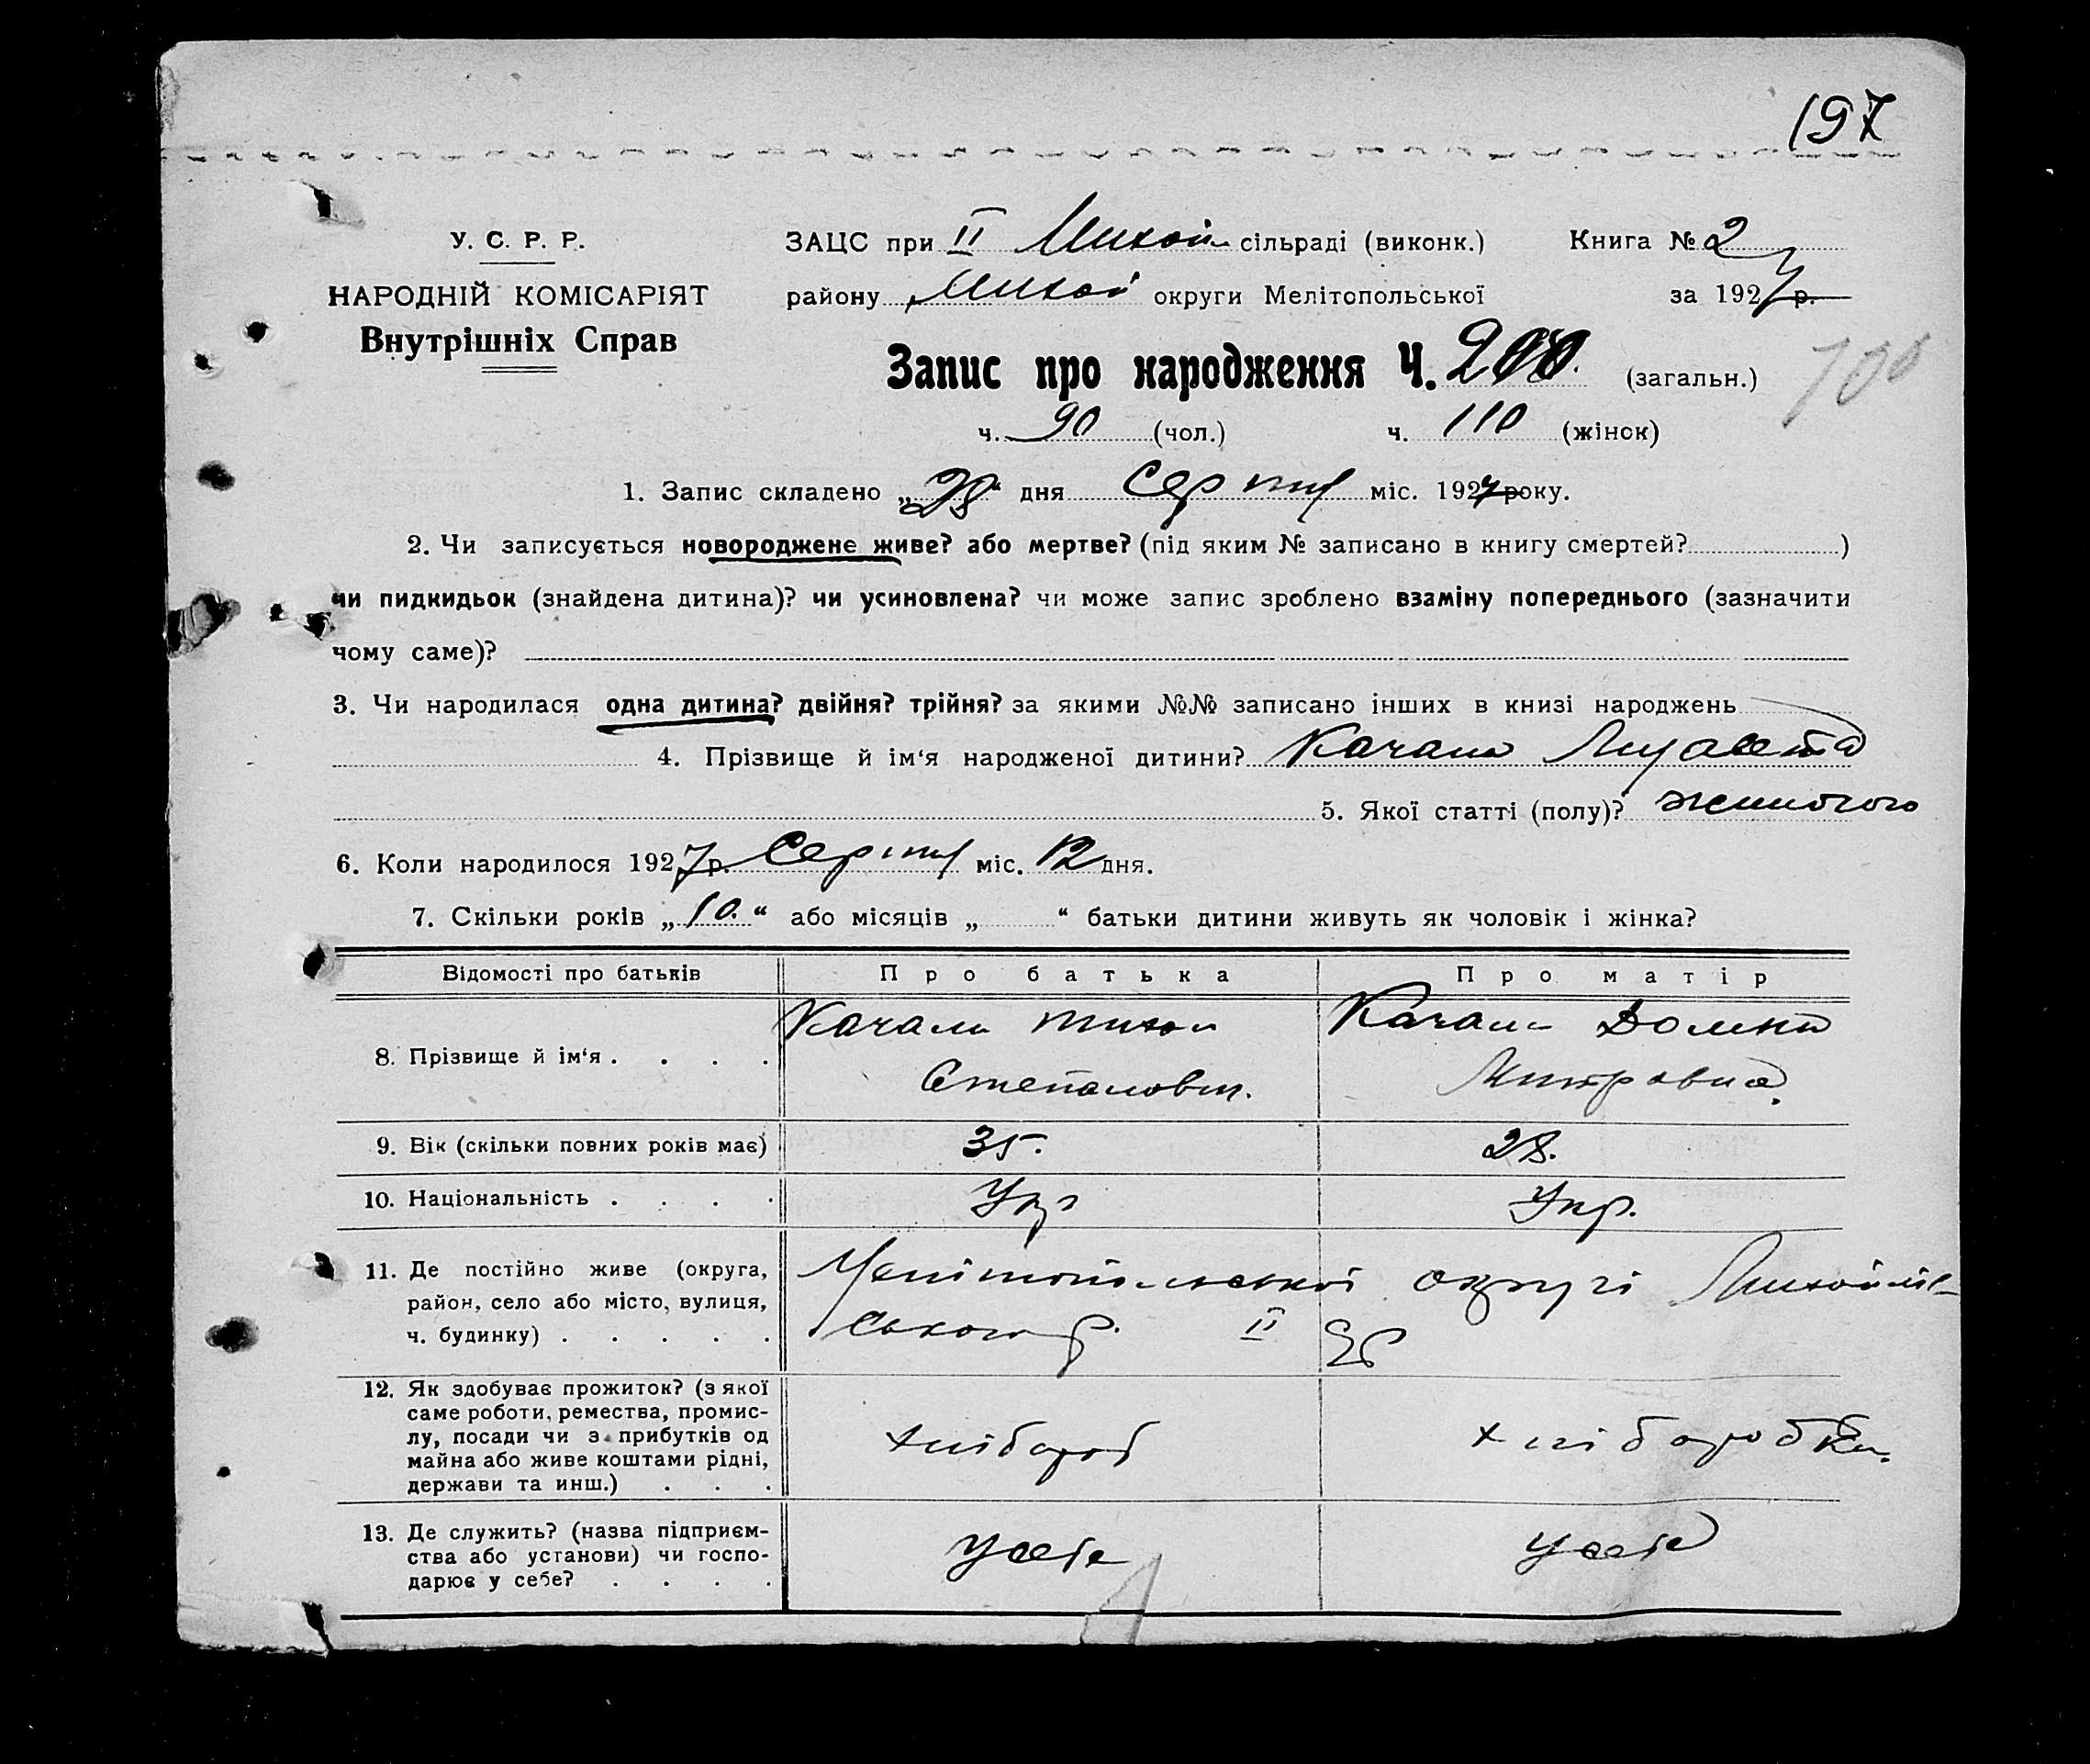 197
У. С. Р. Р.
НАРОДНІЙ КОМІСАРІЯТ
Внутрішніх Справ
ЗАЦС при II Михайл сільраді (виконк.) Книга № 2
району Михай округи Мелітопольської за 1927 р.
Запис про народження Ч. 200. (загальн.) 100
ч. 90 (чол.) ч. 110 (жінок)
1. Запис складено „28“ дня Серпня міс. 1927 року.
2. Чи записується новороджене живе? або мертве? (під яким № записано в книгу смертей? )
чи пидкидьок (знайдена дитина)? чи усиновлена? чи може запис зроблено взаміну попереднього (зазначити
чому саме)?
3. Чи народилася одна дитина? двійня? трійня? за якими №№ записано інших в книзі народжень
4. Прізвище й ім‘я народженої дитини? Качан
5. Якої статті (полу)? жиночого
6. Коли народилося 1927 р. Серпня міс. 12 дня.
7. Скільки років „10.“ або місяців „ “ батьки дитини живуть як чоловік і жінка?
Відомості про батьків Про батька Про матір
8. Прізвище й ім‘я . . . . Качан Тихон Степанович. Качан Домна Митровна.
9. Вік (скільки повних років має) 35. 28.
10. Національність . . . . Укр Укр.
11. Де постійно живе (округа, район, село або місто, вулиця, ч. будинку) . . . . . Мелітопольської округи Михайлів-
ського р. II
12. Як здобуває прожиток? (з якої саме роботи, ремества, промис-
лу, посади чи з прибутків од
майна або живе коштами рідні,
держави та инш.) . . . хлібороб хліборобка.
13. Де служить? (назва підприєм-
ства або установи) чи госпо-
дарює у себе? . . . . у себе у себе